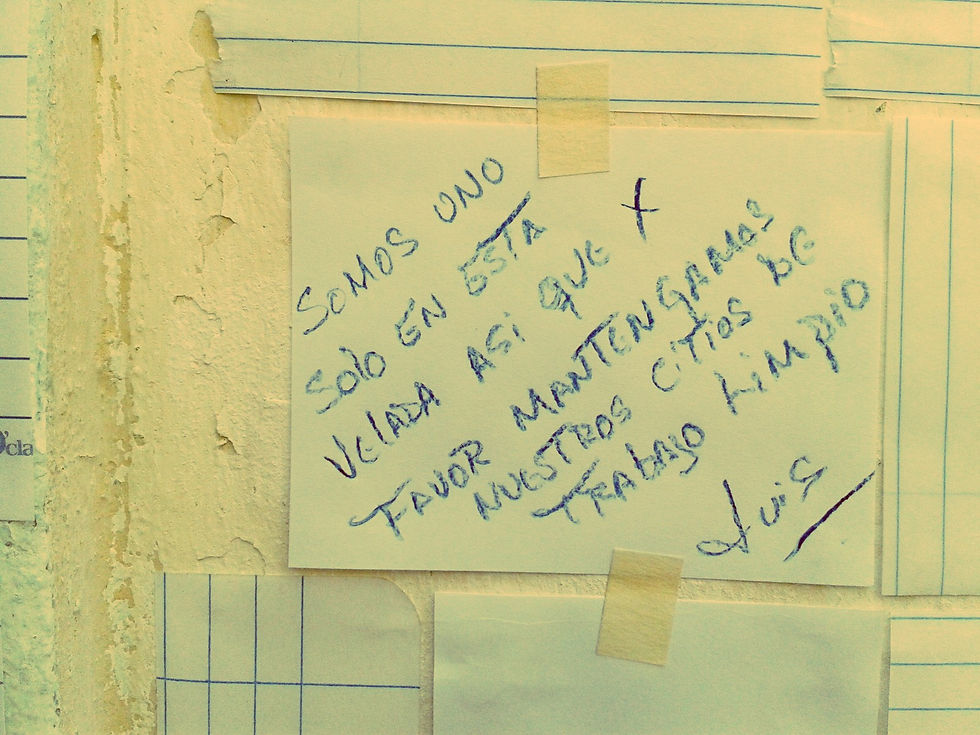 SOMOS UNO
Solo EN ESTA
VELADA ASI QUE X
FAVOR MANTENGAMOS
NUESTROS CITIOS DE
TRABAJO LIMPIO
Luis
cla